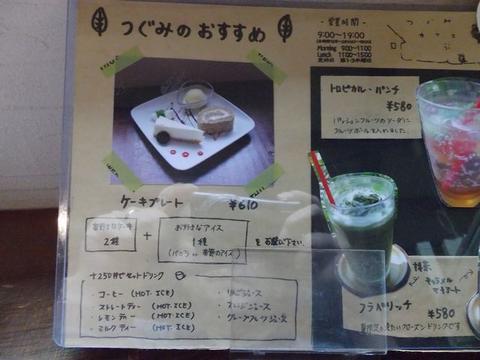 つぐみのおすすめ
- 営業時間 -
9:00~19:00
Morning 9:00~11:00
Lunch 11:00~15:00
つぐみ
カフェ
トロピカル・パンチ
¥580
パッションフルーツのソーダに
フルーツポンチを入れました。
ケーキプレート ¥610
お好きなケーキ
2種
+
お好きなアイス
1種
(バニラ or 季節のアイス)
をお選び下さい。
+250円でセットドリンク
・コーヒー (HOT・ICE)
・ストレートティー (HOT・ICE)
・レモンティー (HOT・ICE)
・ミルクティー (HOT・ICE)
・りんごジュース
・オレンジジュース
・グレープフルーツジュース
抹茶
キャラメル
フラペリッチ
¥580
フローズンドリンクです